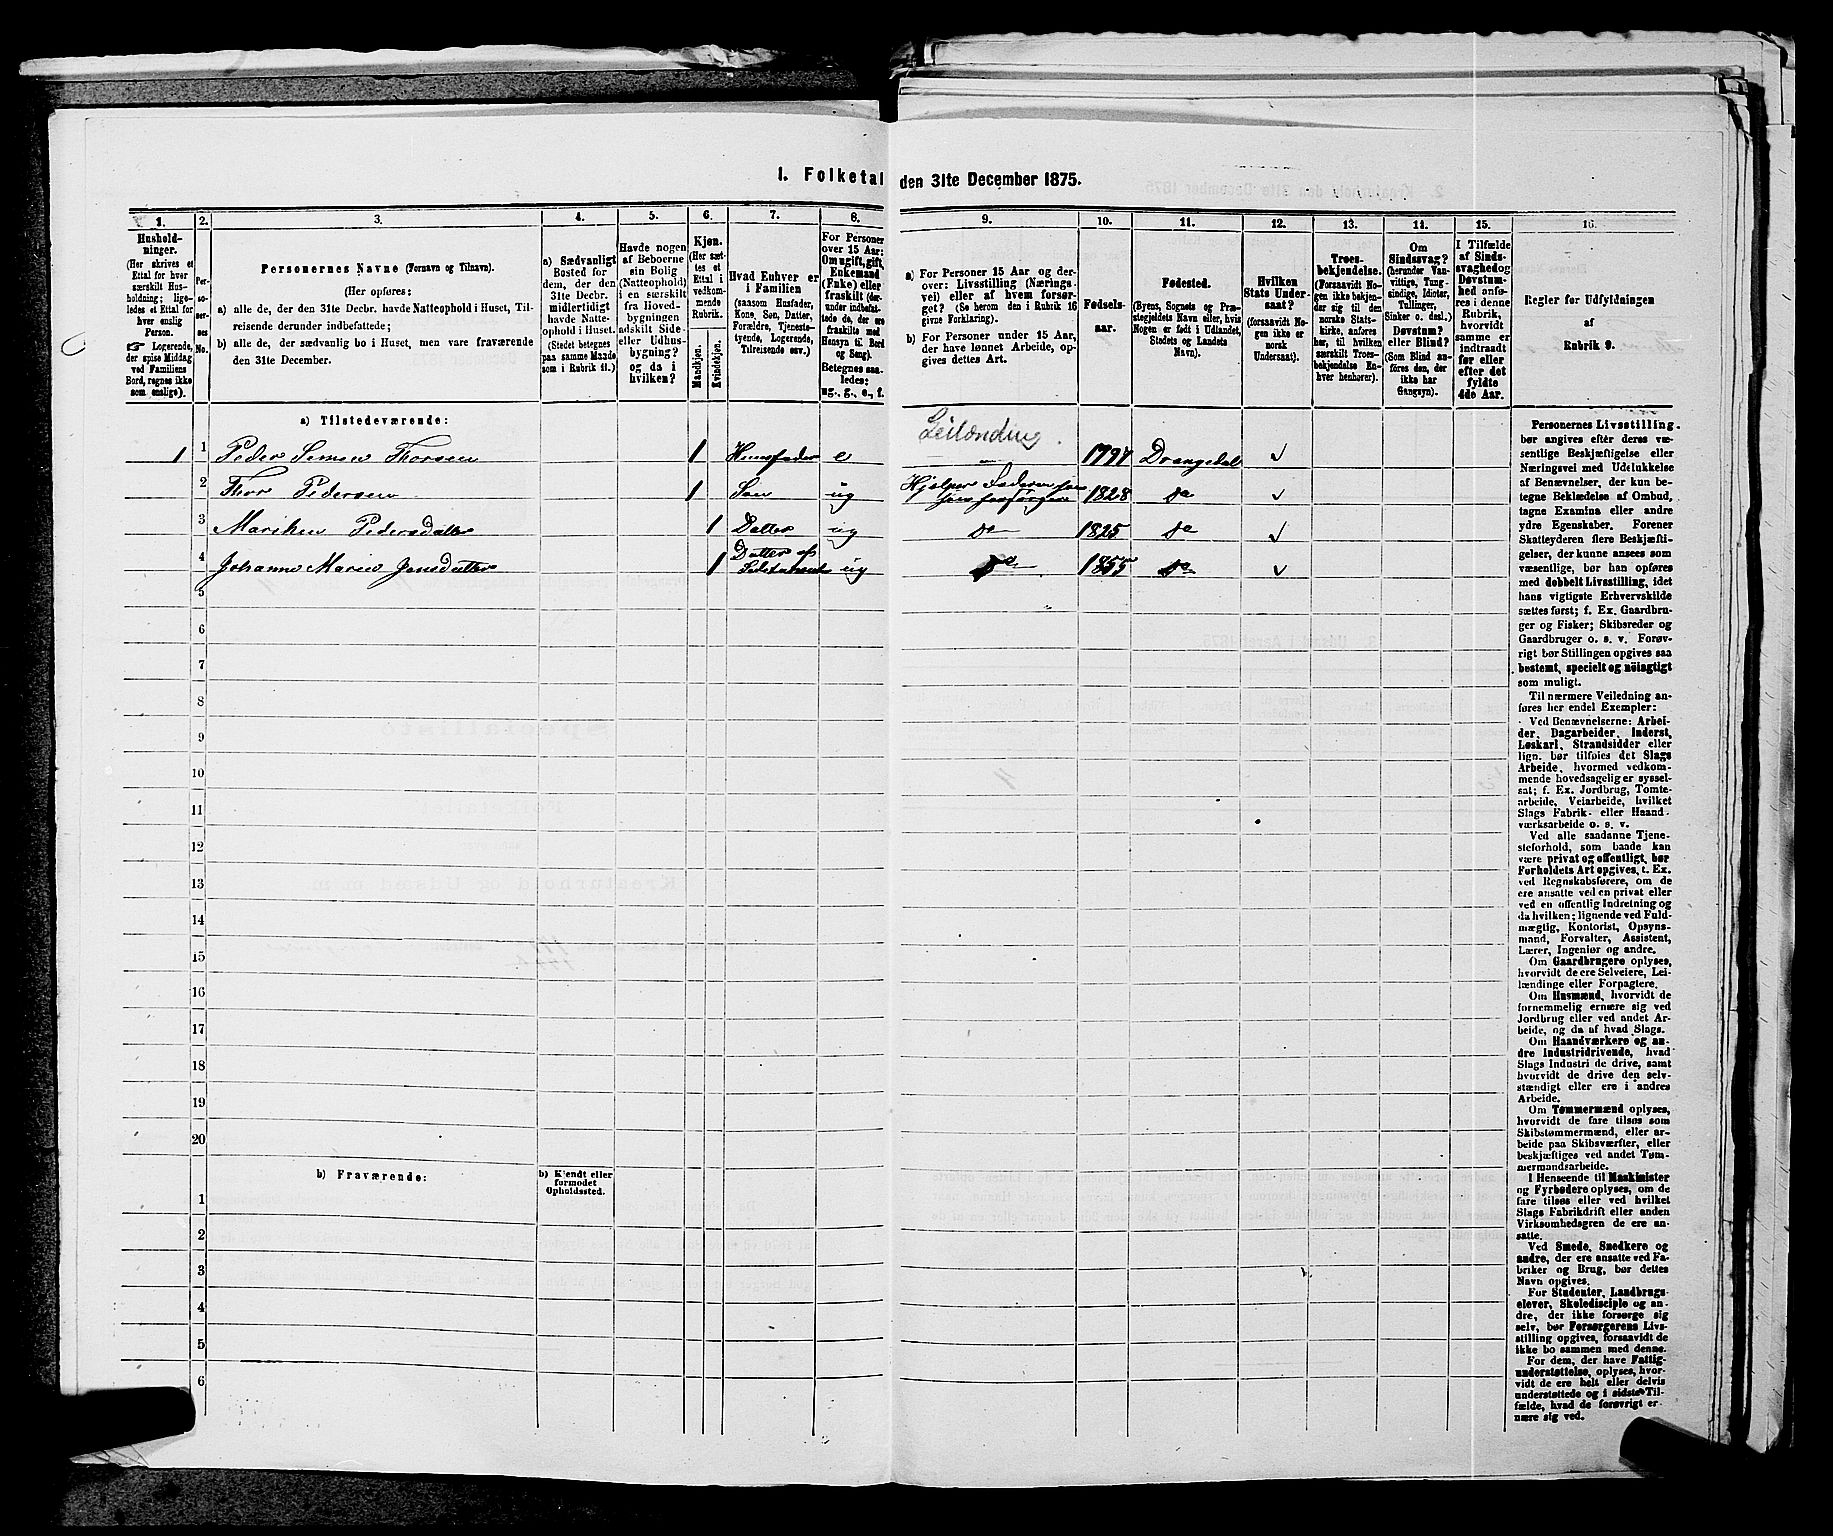 I. Folketal den 31te December 1875.
1. 2. 3. 4. 5. 6. 7. 8. 9. 10. 11. 12. 13. 14. 15. 16.
Hushold-
ninger.
(Her skrives et
Ettal for hver
særskilt Hus-
holdning; lige-
ledes et Ettal for
hver enslig
Person.
☞ Logerende,
der spise Middag
ved Familiens
Bord, regnes ikke
som enslige).
Per-
so-
ner-
nes
No.
Personernes Navne (Fornavn og Tilnavn).
(Her opføres:
a) alle de, der den 31te Decbr. havde Natteophold i Huset, Til-
reisende derunder indbefattede;
b) alle de, der sædvanlig bo i Huset, men vare fraværende
den 31te December.
a) Sædvanligt
Bosted for
dem, der den
31te Decbr.
midlertidigt
havde Natte-
ophold i Huset.
(Stedet betegnes
paa samme Maade
som i Rubrik 11.)
Havde nogen
af Beboerne
sin Bolig
(Natteophold)
i en særskilt
fra Hoved-
bygningen
adskilt Side-
eller Udhus-
bygning?
og da i
hvilken?
Kjøn.
(Her sæt-
tes et
Ettal i
vedkom-
mende
Rubrik.
Mandkjøn.
Kvindekjøn.
Hvad Enhver er
i Familien
(saasom Husfader,
Kone, Søn, Datter,
Forældre, Tjeneste-
tyende, Logerende,
Tilreisende osv.)
For Personer
over 15 Aar:
Om ugift, gift,
Enkemand
(Enke) eller
fraskilt (der-
under indbefat-
tede de, der ere
fraskilte med
Hensyn til Bord
og Seng).
Betegnes saa-
ledes:
ug., g., e., f.
a) For Personer 15 Aar og der-
over: Livsstilling (Nærings-
vei) eller af hvem forsør-
get? (Se herom den i Rubrik 16
givne Forklaring).
b) For Personer under 15 Aar,
der have lønnet Arbeide, op-
gives dettes Art.
Fødsels-
aar.
Fødested.
(Byens, Sognets og Præ-
stegjeldets Navn eller, hvis
Nogen er født i Udlandet,
Stedets og Landets
Navn).
Hvilken
Stats Under-
saat?
(forsaavidt No-
gen ikke er
norsk
Undersaat).
Troes-
bekjendelse.
(Forsaavidt No-
gen ikke bekjen-
der sig til den
norske Stats-
kirke, anføres
her, til hvilken
særskilt Troes-
bekjendelse En-
hver henhører).
Om
Sindssvag?
(herunder Van-
vittige, Tung-
sindige, Idioter,
Tullinger,
Sinker o. desl.)
Døvstum?
eller Blind?
(Som Blind an-
føres den, der
ikke har
Gangsyn).
I Tilfælde
af Sinds-
svaghed og
Døvstum-
hed anfø-
res i denne
Rubrik,
hvorvidt
samme er
indtraadt
før eller
efter det
fyldte
4de Aar.
Regler for Udfyldningen
af
Rubrik 9.
a) Tilstedeværende:
Leilænding.
1 1 Peder Simen Thorsen 1 Huusfader e 1797 Drangedal ✓
2 Thor Pedersen 1 Søn ug Hjelper Faderen 1828 do ✓
3 Mariken Pedersdatter 1 Datter ug do 1825 do ✓
4 Johanne Marie Jensdatter 1 Datter af Sidstnævnte ug do 1855 do ✓
5
6
7
8
9
10
11
12
13
14
15
16
17
18
19
20
b) Fraværende:
b) Kjendt eller
formodet
Opholdssted.
1
2
3
4
5
6
Personernes Livsstilling
bør angives efter deres væ-
sentlige Beskjæftigelse eller
Næringsvei med Udelukkelse
af Benævnelser, der kun be-
tegne Beklædelse af Ombud,
tagne Examina eller andre
ydre Egenskaber. Forener
Skatteyderen flere Beskjæfti-
gelser, der kunne ansees som
væsentlige, bør han opføres
med dobbelt Livsstilling, idet
hans vigtigste Erhvervskilde
sættes først; f. Ex. Gaardbru-
ger og Fisker; Skibsreder og
Gaardbruger o. s. v. Forøv-
rigt bør Stillingen opgives saa
bestemt, specielt og nöiagtigt
som muligt.
Til nærmere Veiledning an-
føres her endel Exempler:
Ved Benævnelserne: Arbei-
der, Dagarbeider, Inderst,
Løskarl, Strandsidder eller
lign. bør tilføies det Slags
Arbeide, hvormed vedkom-
mende hovedsagelig er syssel-
sat; f. Ex. Jordbrug, Tomte-
arbeide, Veiarbeide, hvilket
Slags Fabrik- eller Haand-
værksarbeide o. s. v.
Ved alle saadanne Tjene-
steforhold, som baade kan
være privat og offentligt, bør
Forholdets Art opgives, t. Ex.
ved Regnskabsførere, om de
ere ansatte ved en privat eller
ved en offentlig Indretning og
da hvilken; lignende ved Fuld-
mægtig, Kontorist, Opsyns-
mand, Forvalter, Assistent,
Lærer, Ingeniør og andre.
Om Gaardbrugere oplyses,
hvorvidt de ere Selveiere, Lei-
lændinge eller Forpagtere.
Om Husmænd, hvorvidt de
fornemmelig ernære sig ved
Jordbrug eller ved andet Ar-
beide, og da af hvad Slags.
Om Haandværkere og an-
dre Industridrivende, hvad
Slags Industri de drive, samt
hvorvidt de drive den selv-
stændigt eller ere i andres
Arbeide.
Om Tømmermænd oplyses,
hvorvidt de fare tilsøs som
Skibstømmermænd, eller ar-
beide paa Skibsværfter, eller
beskjæftiges ved andet Tøm-
mermandsarbeide.
I Henseende til Maskinister
og Fyrbødere oplyses, om de
fare tilsøs eller ved hvilket
Slags Fabrikdrift eller anden
Virksomhedsgren de ere an-
satte.
Ved Smede, Snedkere og
andre, der ere ansatte ved Fa-
briker og Brug, bør dettes
Navn opgives.
For Studenter, Landbrugs-
elever, Skoledisciple og an-
dre, der ikke forsørge sig
selv, bør Forsørgerens Livs-
stilling opgives, forsaavidt de
ikke bo sammen med denne.
For dem, der have Fattig-
understøttelse, oplyses, hvor-
vidt de ere helt eller delvis
understøttede og i sidste Til-
fælde, hvad de forøvrigt er-
nære sig ved.